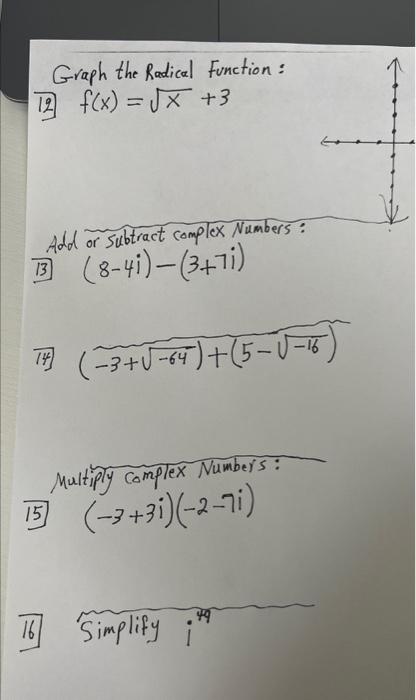 Graph the Radical Function :
12 f(x) = √x + 3
Add or subtract complex Numbers :
13 (8-4i) - (3+7i)
14 (-3+√-64) + (5-√-16)
Multiply complex Numbers :
15 (-3+3i)(-2-7i)
16 Simplify i⁴⁹